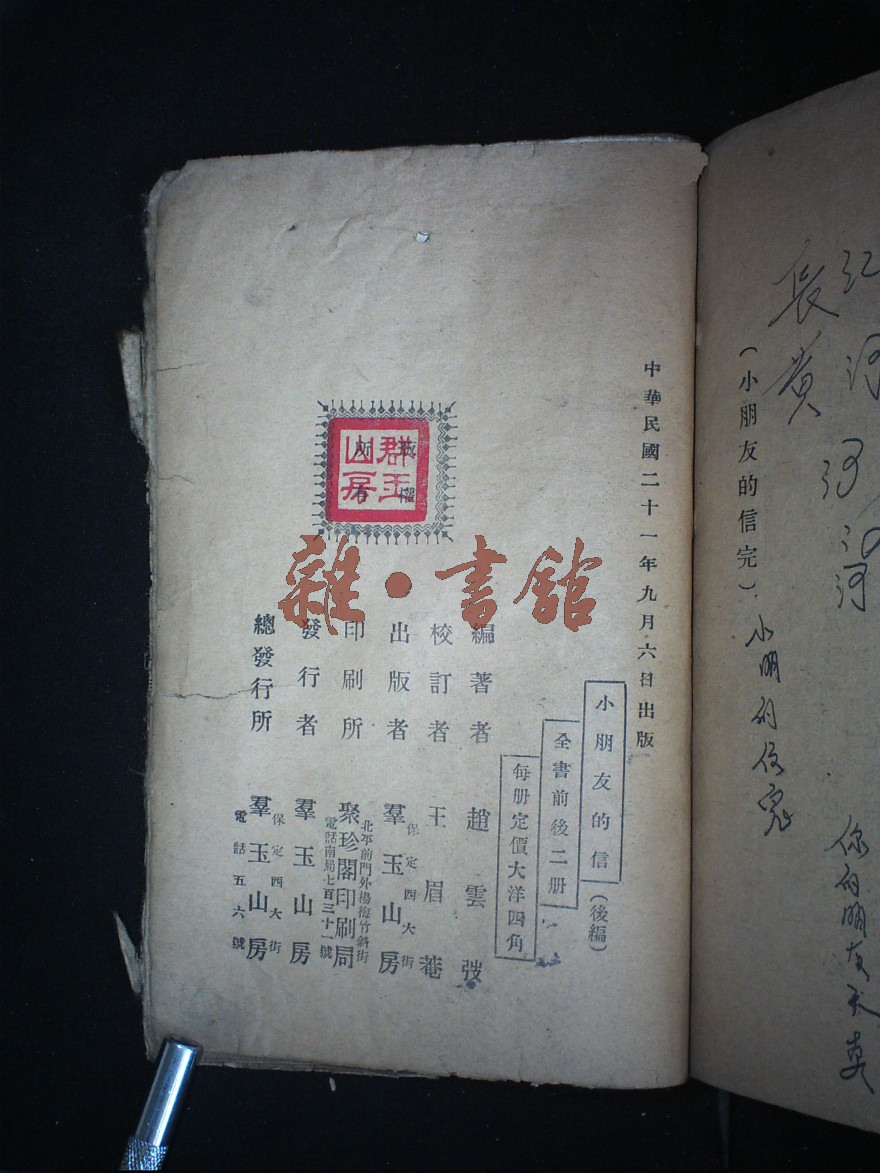 長江
黄河
河
河
河
(小朋友的信完)
小朋的信完
你的朋友天真
中華民國二十一年九月六日出版
小朋友的信(後編)
全書前後二册
每册定價大洋四角
編著者 趙雲弢
校訂者 王眉菴
出版者 保定四大街 羣玉山房
印刷所 北平前門外楊梅竹斜街 聚珍閣印刷局 電話南局七百三十一號
發行者 羣玉山房
總發行所 保定四大街 羣玉山房 電話五六號
版權所有
群玉山房
雜·書館